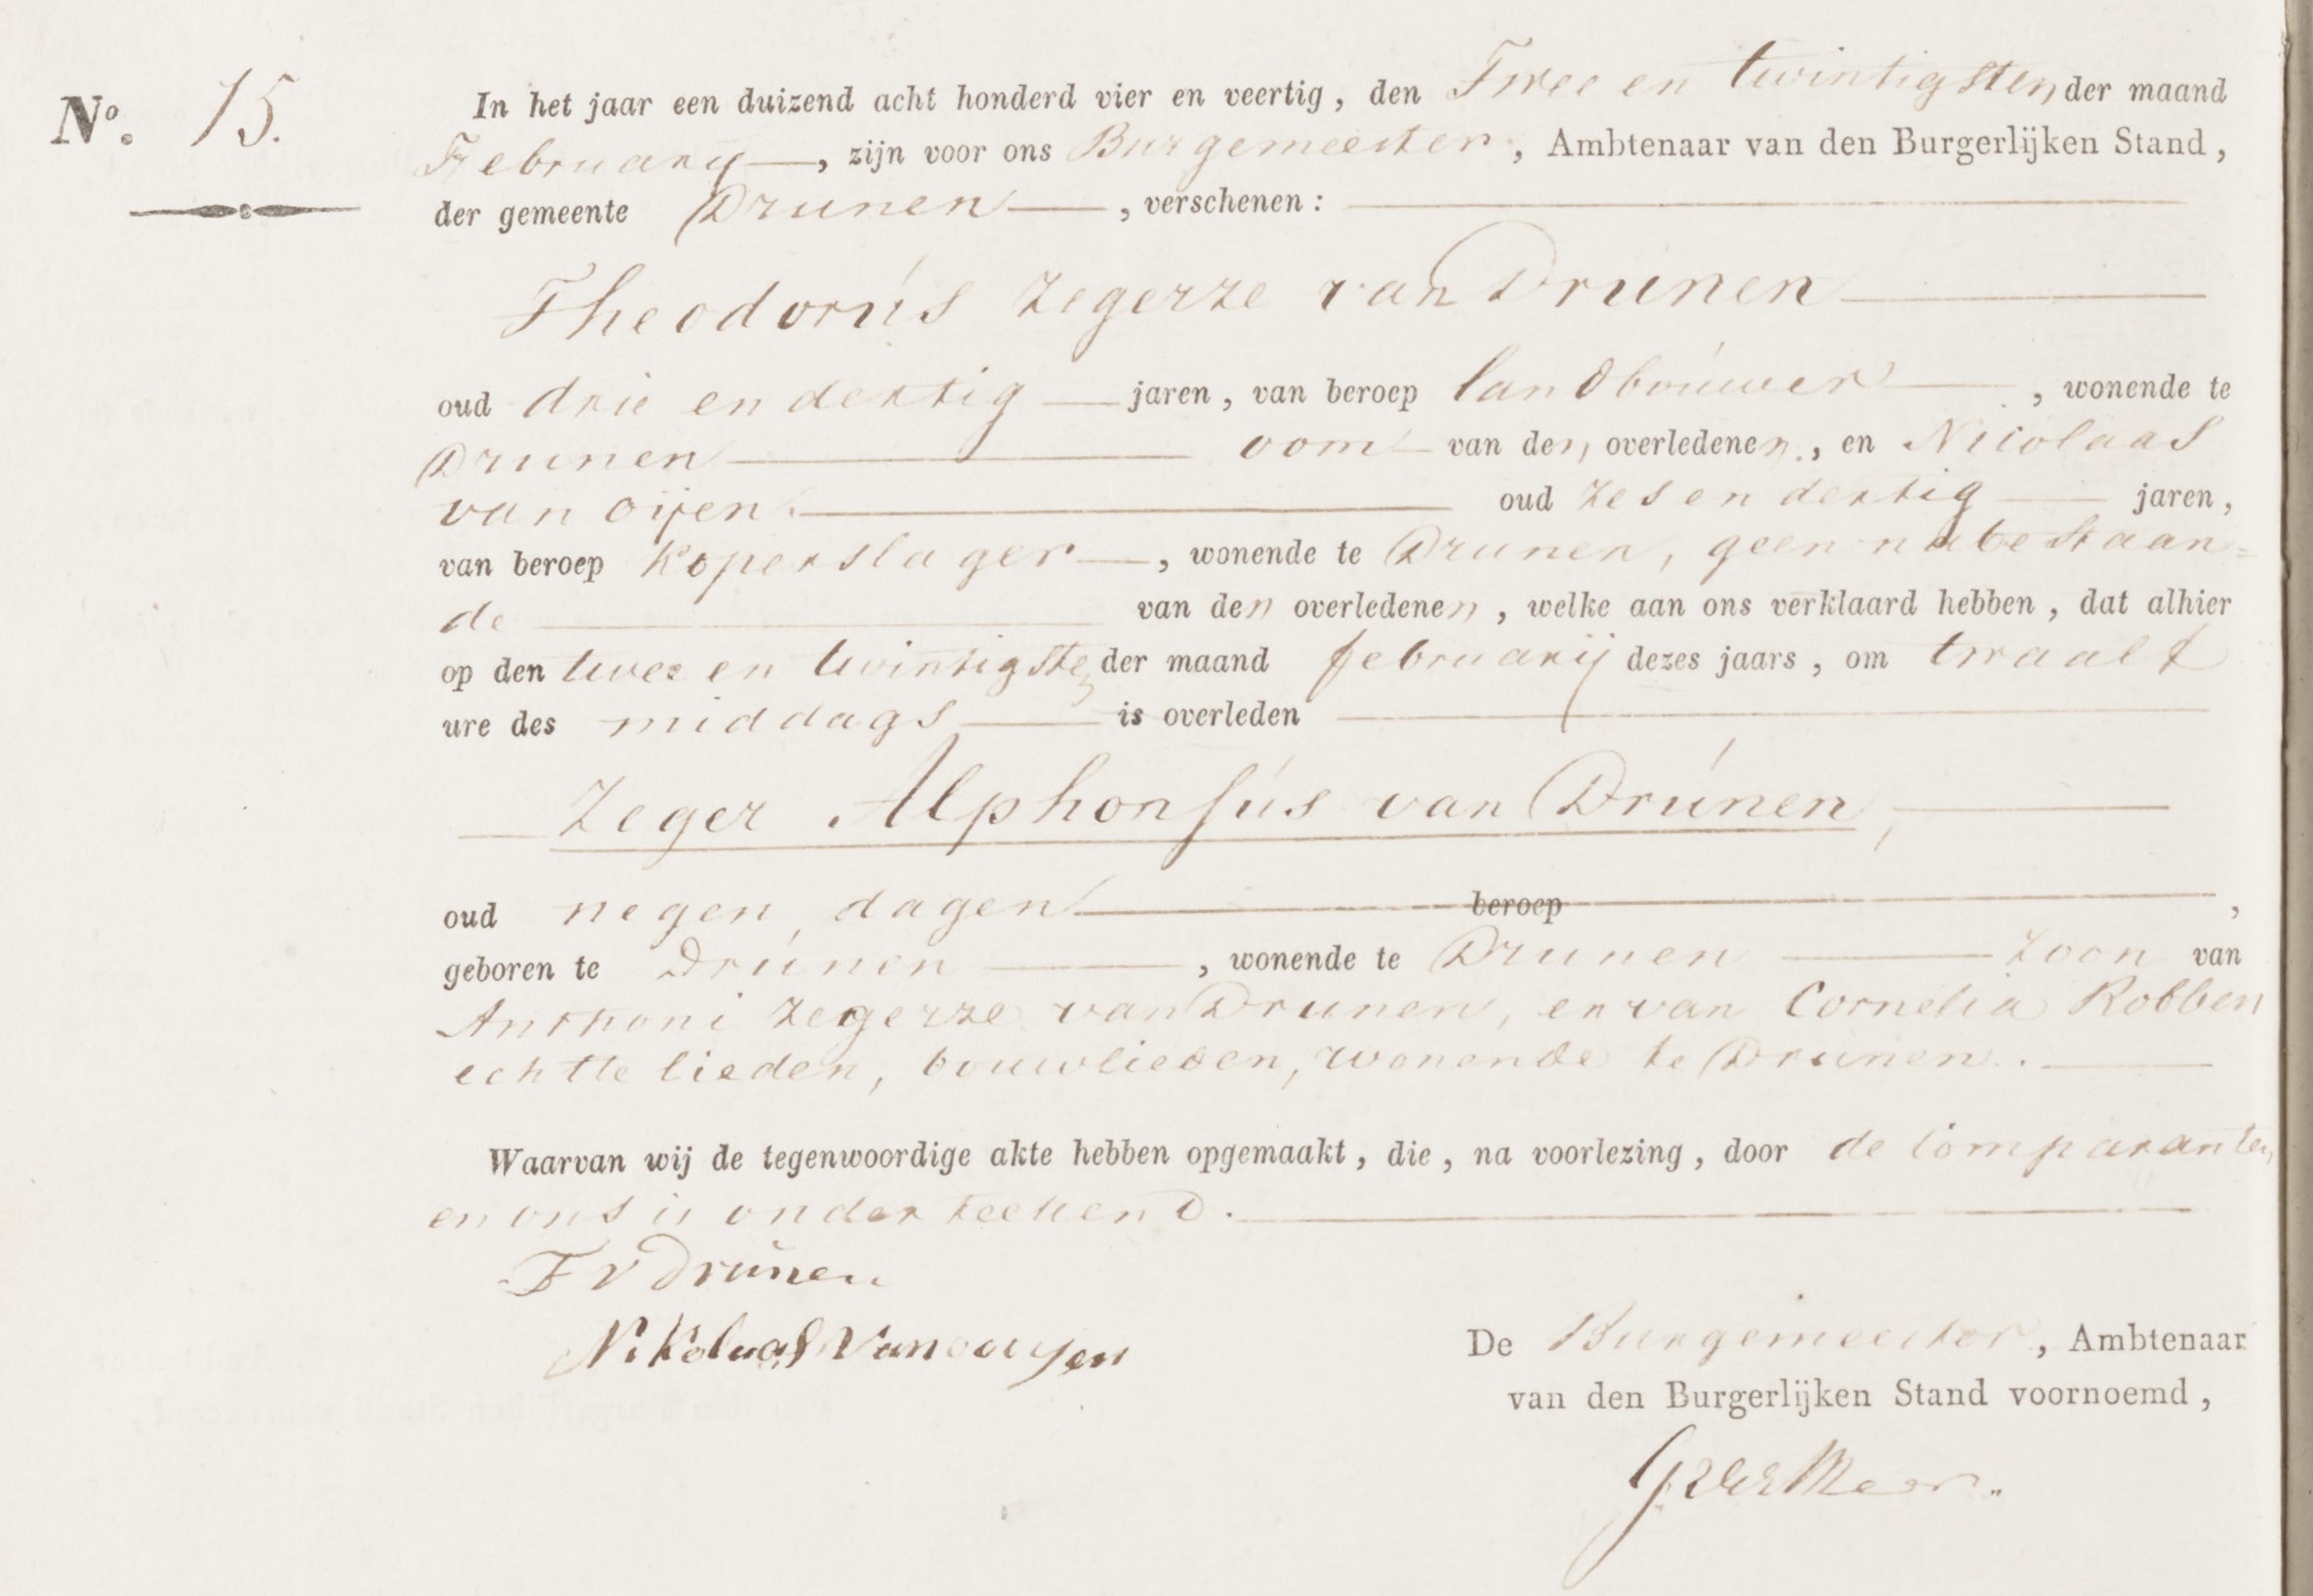 Nº. 15.
In het jaar een duizend acht honderd vier en veertig, den Twee en twintigsten der maand
February, zijn voor ons Burgemeester, Ambtenaar van den Burgerlijken Stand,
der gemeente Drunen, verschenen:
Theodorus Zegerze van Drunen
oud drie en dertig jaren, van beroep landbouwer, wonende te
Drunen oom van den overledenen, en Nicolaas
van oijen oud zes en dertig jaren,
van beroep koperslager, wonende te Drunen, geen nabestaan=
de van den overledenen, welke aan ons verklaard hebben, dat alhier
op den twee en twintigsten der maand februarij dezes jaars, om twaalf
ure des middags is overleden
Zeger Alphonsus van Drunen,
oud negen dagen beroep,
geboren te Drunen, wonende te Drunen zoon van
Anthoni Zegerze van Drunen, en van Cornelia Robben
echtte lieden, bouwlieden, wonende te Drunen.
Waarvan wij de tegenwoordige akte hebben opgemaakt, die, na voorlezing, door de comparanten
en ons is onderteekend.
T v Drunen
Nikolaas Van ouyen
De Burgemeester, Ambtenaar
van den Burgerlijken Stand voornoemd,